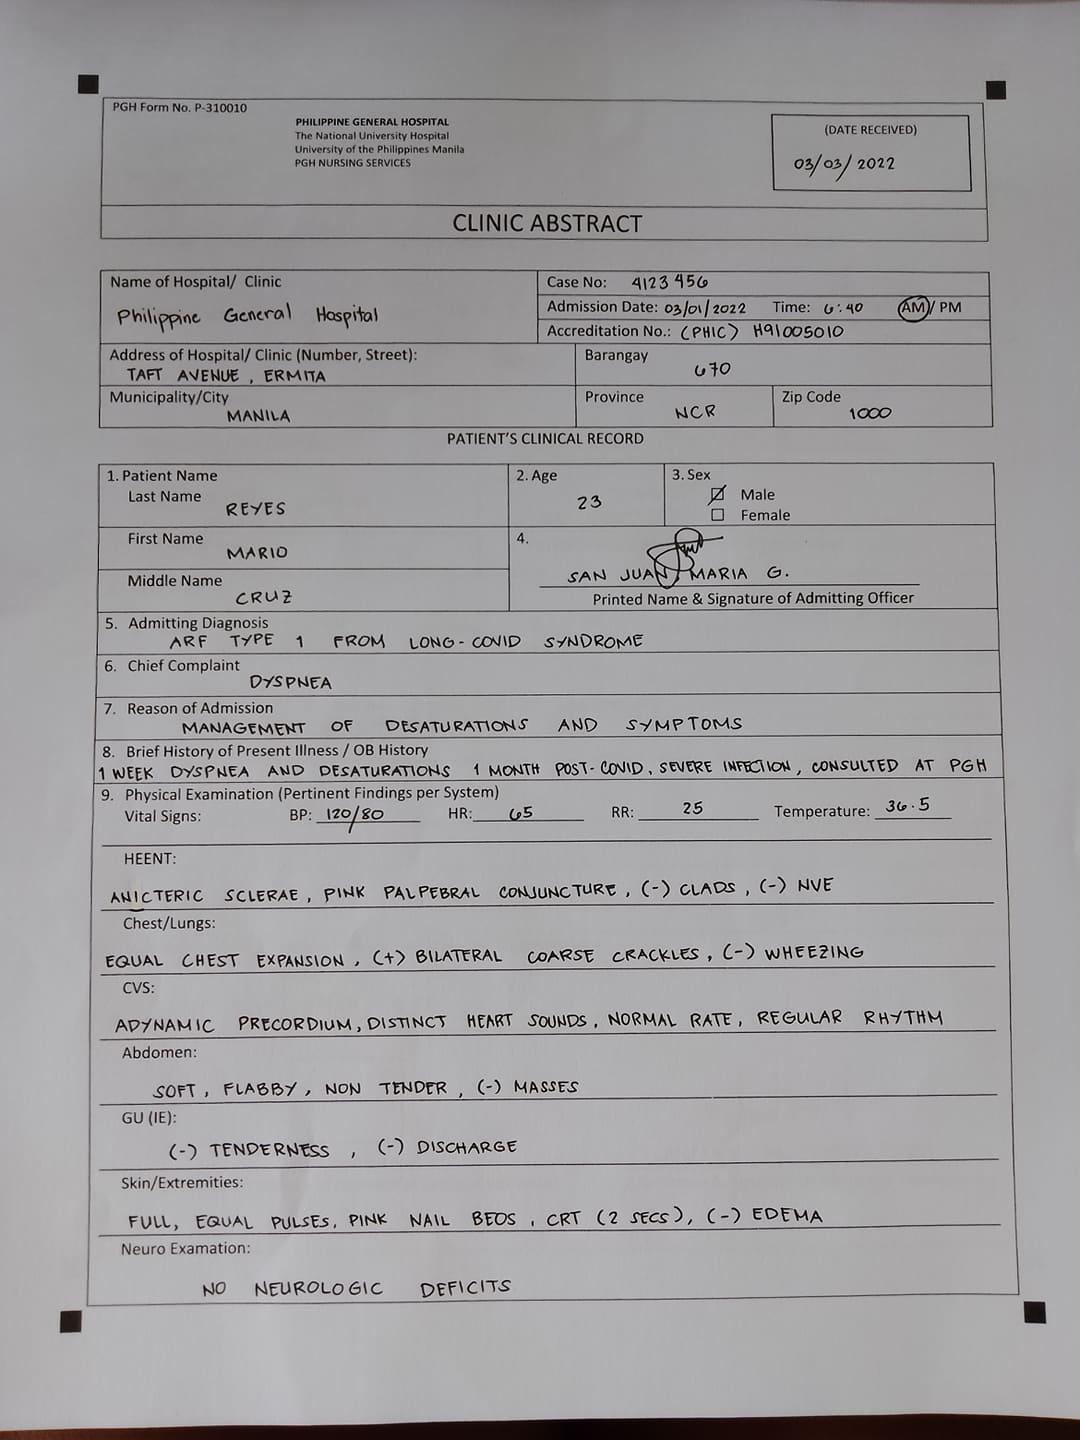 PGH Form No. P-310010
PHILIPPINE GENERAL HOSPITAL
The National University Hospital
University of the Philippines Manila
PGH NURSING SERVICES
(DATE RECEIVED)
03/03/2022
CLINIC ABSTRACT
Name of Hospital/ Clinic
Philippine General Hospital
Case No: 4123456
Admission Date: 03/01/2022 Time: 6:40 AM/ PM
Accreditation No.: (PHIC) H91005010
Address of Hospital/ Clinic (Number, Street):
TAFT AVENUE, ERMITA
Barangay
670
Municipality/City
MANILA
Province
NCR
Zip Code
1000
PATIENT'S CLINICAL RECORD
1. Patient Name
Last Name
REYES
2. Age
23
3. Sex
Male
Female
First Name
MARIO
Middle Name
CRUZ
4.
SAN JUAN, MARIA G.
Printed Name & Signature of Admitting Officer
5. Admitting Diagnosis
ARF TYPE 1 FROM LONG-COVID SYNDROME
6. Chief Complaint
DYSPNEA
7. Reason of Admission
MANAGEMENT OF DESATURATIONS AND SYMPTOMS
8. Brief History of Present Illness / OB History
1 WEEK DYSPNEA AND DESATURATIONS 1 MONTH POST-COVID, SEVERE INFECTION, CONSULTED AT PGH
9. Physical Examination (Pertinent Findings per System)
Vital Signs: BP: 120/80 HR: 65 RR: 25 Temperature: 36.5
HEENT:
ANICTERIC SCLERAE, PINK PALPEBRAL CONJUNCTURE, (-) CLADS, (-) NVE
Chest/Lungs:
EQUAL CHEST EXPANSION, (+) BILATERAL COARSE CRACKLES, (-) WHEEZING
CVS:
ADYNAMIC PRECORDIUM, DISTINCT HEART SOUNDS, NORMAL RATE, REGULAR RHYTHM
Abdomen:
SOFT, FLABBY, NON TENDER, (-) MASSES
GU (IE):
(-) TENDERNESS, (-) DISCHARGE
Skin/Extremities:
FULL, EQUAL PULSES, PINK NAIL BEDS, CRT (2 SECS), (-) EDEMA
Neuro Examation:
NO NEUROLOGIC DEFICITS